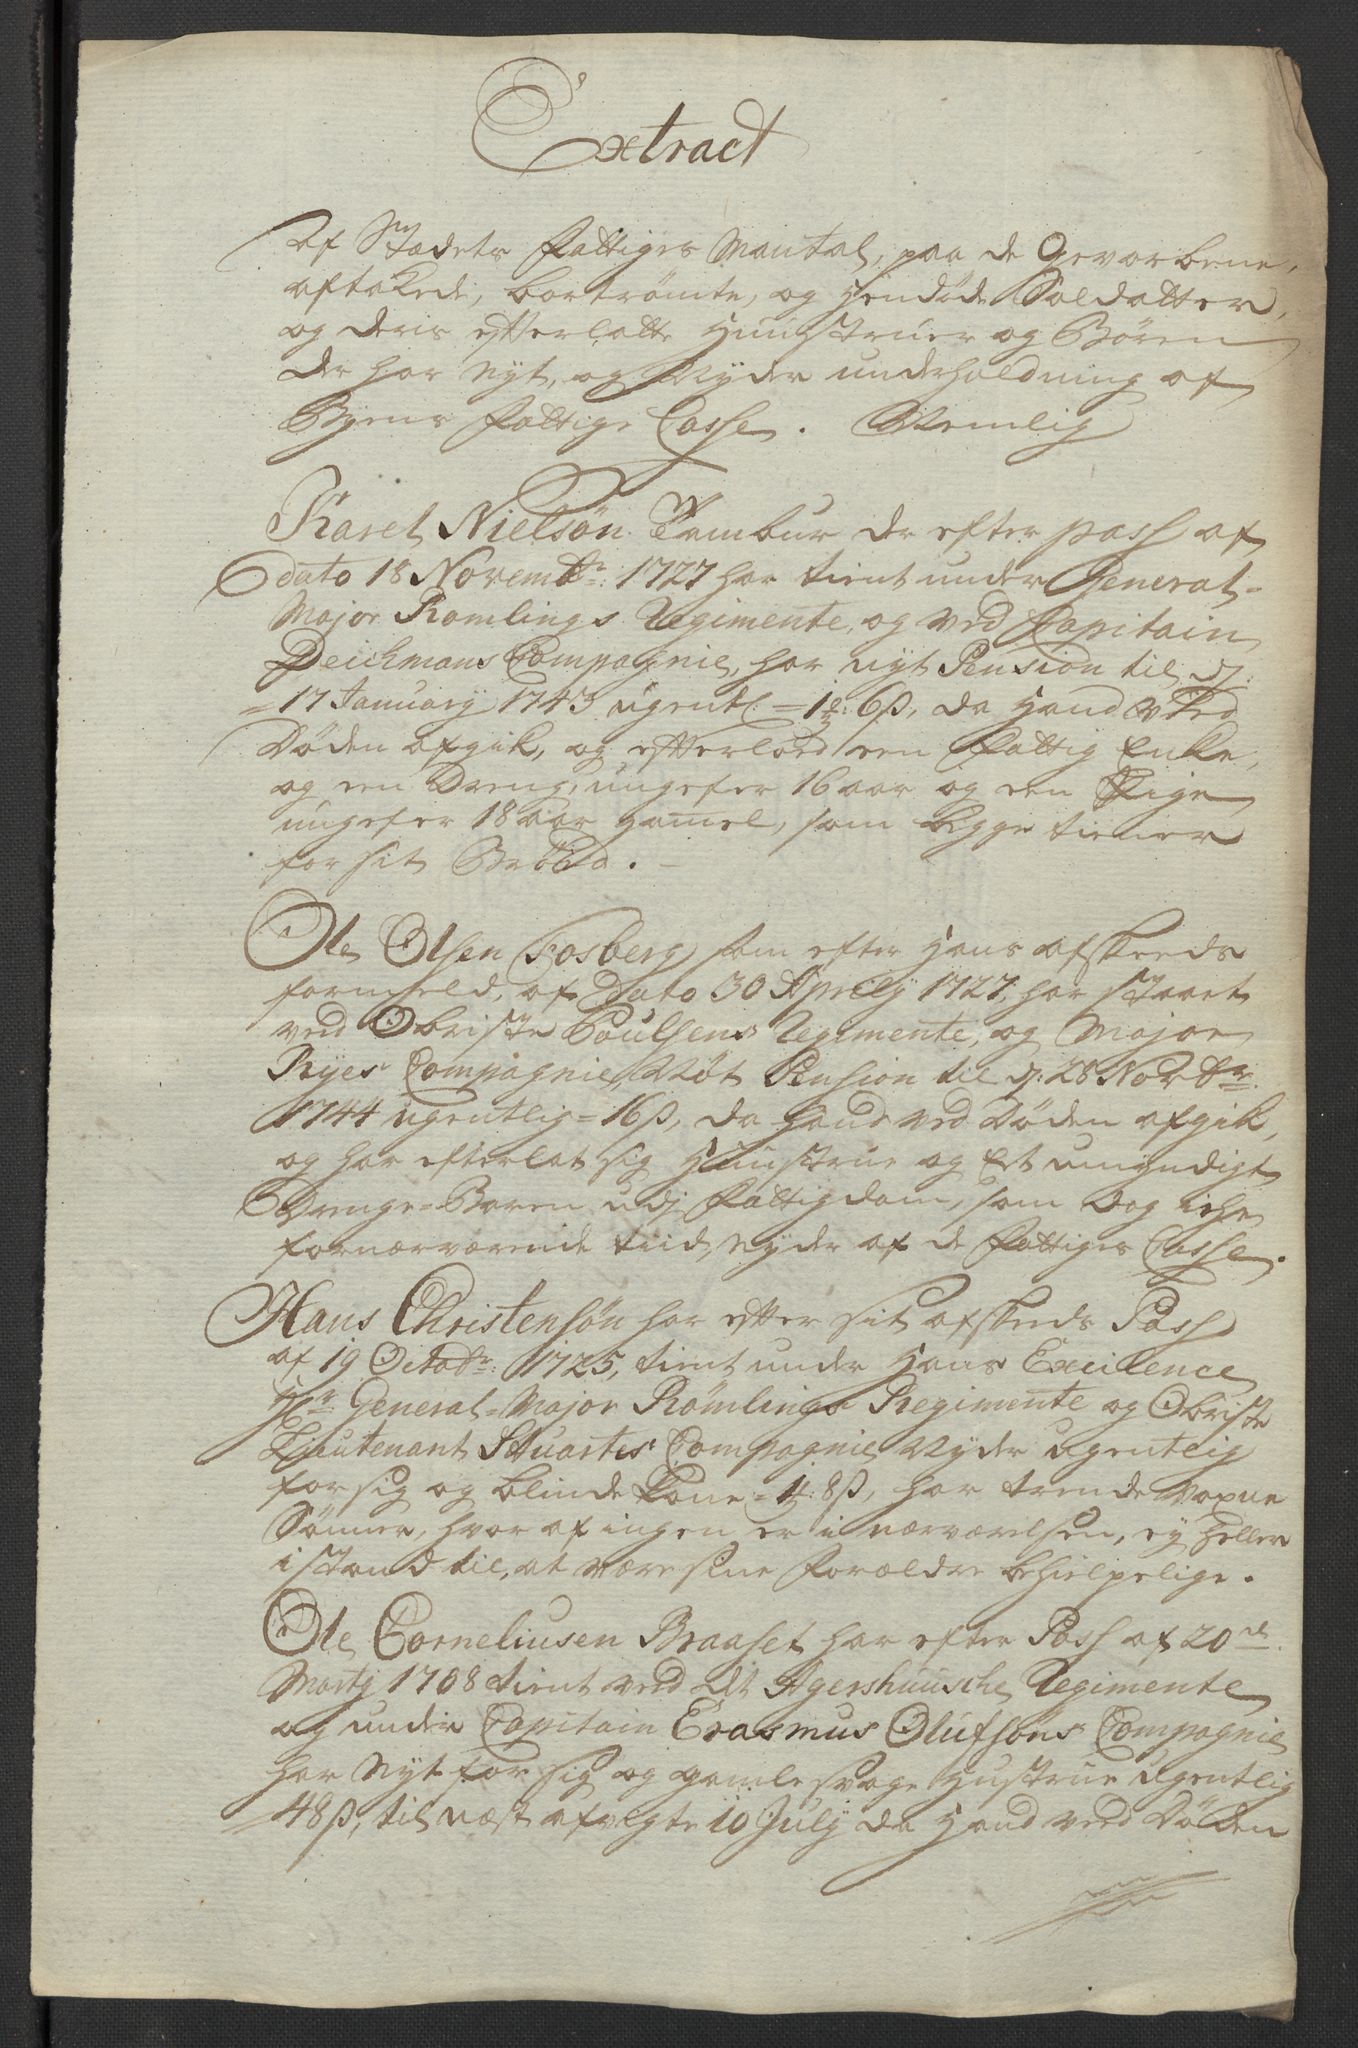 Extract
Af Stadets Fattiges Mantal, paa de Gevorbene,
aftakkede, bortrömte, og hendöde Soldatter,
og deris efterlatte Hunstruer og Bören
der har Nÿt, og Nÿder underholdning af
Byens Fattige Casse. Nemlig
Karel Nielsön Tambur der efter pass af
dato 18 Novembr: 1727 har tient under General-
Major Romlings Regimente, og ved Capitain
Deichmans Compagnie, har nÿt Pension til dj
17 Januarÿ 1743 ugentl: = 1 6 ß, da Hand ved
Döden afgik, og efterlod een fattig Enke,
og een Dreng, ungefer 16 aar og een Pige
ungefer 18 aar gamel, som begge tiener
for sit Bröed.
Ole Olsen Fosberg som efter Hans afskeeds
formeld, af Dato 30 Aprilÿ 1727, har staaet
ved Obriste Poulsens Regimente, og Major
Ryes Compagnie, Nöt Pension til dj: 28 Novbr:
1744 ugentlig = 16 ß, da Hand ved Döden afgik,
og har efterlat sig Hunstrue og Et umÿndigt
Drenge-Baren udj Fattigdom, som dog iche
fornærværende tiid, nÿder af de Fattiges Casse.
Hans Christensön har efter sit afskeeds Pass
af 19 Octobr: 1725, tient under Hans Excilence
Hr: General-Major Römlings Regimente og Obriste
Lieutenant Stuartes Compagnie Nÿder ugentlig
for sig og blinde Kone = 1 8 ß, har trende Voxne
Sönner, hvor af ingen er i nærværelsen, eÿ heller
i stand til, at være sine Forældre behielpelige.
Ole Corneliusen Braaset har efter Pass af 20de
Martj 1708 tient ved det Agershuusche Regimente
og under Capitain Erasmus Olufsöns Compagnie
har Nÿt for sig og gamle svage Hustrue ugentlig
48 ß, til næst afvigte 10 Julÿ da Hand ved Döden